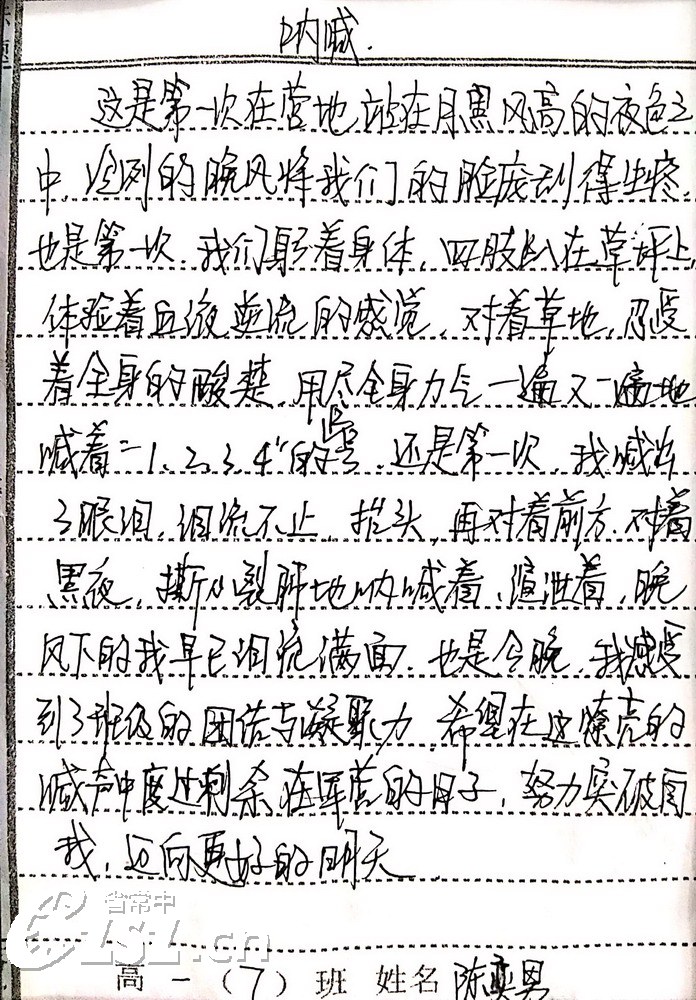 呐喊.
这是第一次在营地站在月黑风高的夜色之
中,冷冽的晚风将我们的脸庞刮得生疼,
也是第一次,我们躬着身体,四肢趴在草坪上,
体验着血液逆流的感觉,对着草地,忍受
着全身的酸楚,用尽全身力气一遍又一遍地
喊着"1、2、3、4"的口号,还是第一次,我喊出
了眼泪,泪流不止,抬头,再对着前方,对着
黑夜,撕心裂肺地呐喊着,渲泄着,晚
风下的我早已泪流满面.也是今晚,我感受
到了班级的团结与凝聚力,希望在这嘹亮的
喊声中度过剩余在军营的日子,努力突破自
我,迈向更好的明天
省常中
CZ.cn
高一(7)班 姓名 陈奕男